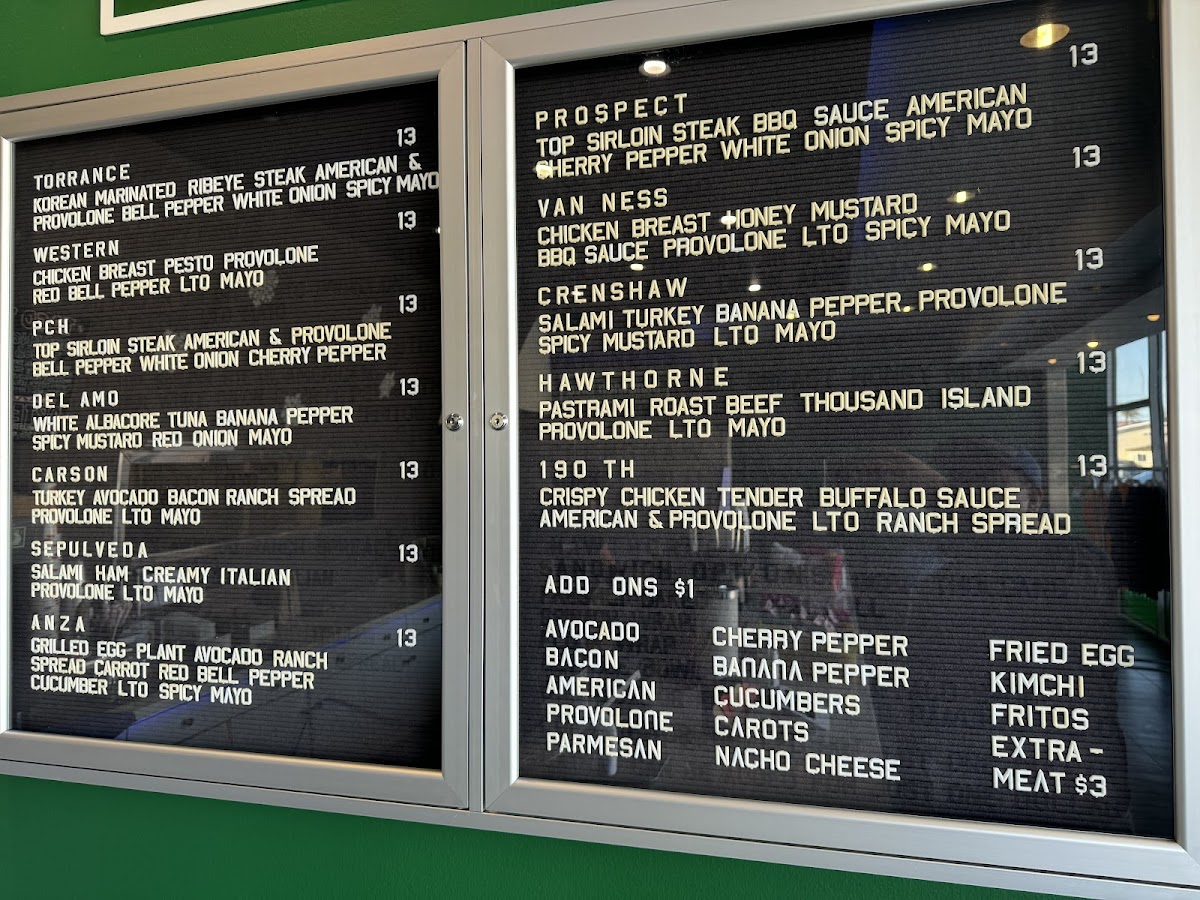 13
TORRANCE
KOREAN MARINATED RIBEYE STEAK AMERICAN &
PROVOLONE BELL PEPPER WHITE ONION SPICY MAYO
13
WESTERN
CHICKEN BREAST PESTO PROVOLONE
RED BELL PEPPER LTO MAYO
13
PCH
TOP SIRLOIN STEAK AMERICAN & PROVOLONE
BELL PEPPER WHITE ONION CHERRY PEPPER
13
DEL AMO
WHITE ALBACORE TUNA BANANA PEPPER
SPICY MUSTARD RED ONION MAYO
13
CARSON
TURKEY AVOCADO BACON RANCH SPREAD
PROVOLONE LTO MAYO
13
SEPULVEDA
SALAMI HAM CREAMY ITALIAN
PROVOLONE LTO MAYO
13
ANZA
GRILLED EGG PLANT AVOCADO RANCH
SPREAD CARROT RED BELL PEPPER
CUCUMBER LTO SPICY MAYO
13
PROSPECT
TOP SIRLOIN STEAK BBQ SAUCE AMERICAN
CHERRY PEPPER WHITE ONION SPICY MAYO
13
VAN NESS
CHICKEN BREAST HONEY MUSTARD
BBQ SAUCE PROVOLONE LTO SPICY MAYO
13
CRENSHAW
SALAMI TURKEY BANANA PEPPER PROVOLONE
SPICY MUSTARD LTO MAYO
13
HAWTHORNE
PASTRAMI ROAST BEEF THOUSAND ISLAND
PROVOLONE LTO MAYO
13
190 TH
CRISPY CHICKEN TENDER BUFFALO SAUCE
AMERICAN & PROVOLONE LTO RANCH SPREAD
ADD ONS $1
AVOCADO
BACON
AMERICAN
PROVOLONE
PARMESAN
CHERRY PEPPER
BANANA PEPPER
CUCUMBERS
CAROTS
NACHO CHEESE
FRIED EGG
KIMCHI
FRITOS
EXTRA-
MEAT $3